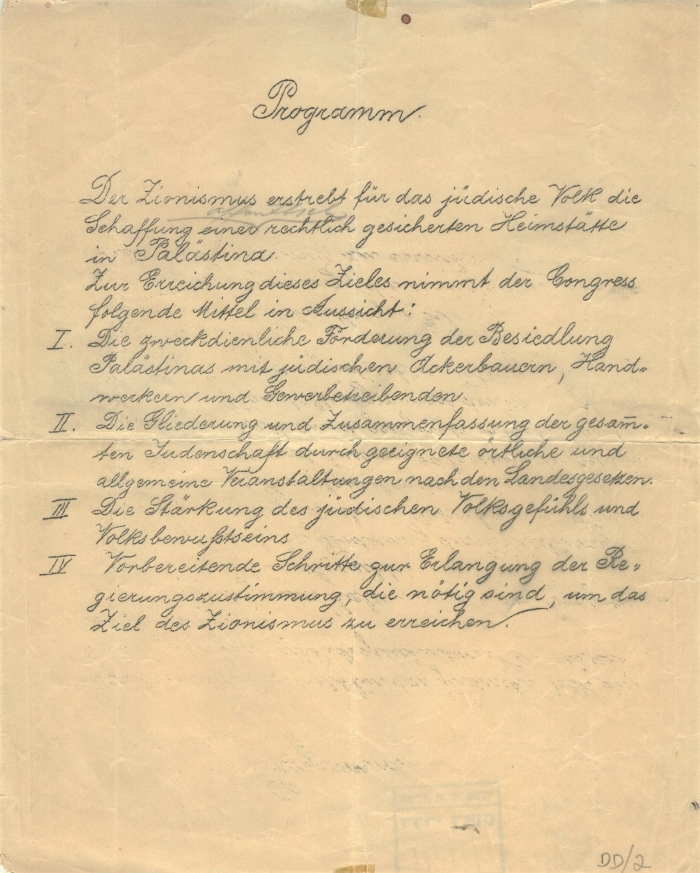 Programm.
Der Zionismus erstrebt für das jüdische Volk die
Schaffung einer rechtlich gesicherten Heimstätte
in Palästina
Zur Erreichung dieses Zieles nimmt der Congress
folgende Mittel in Aussicht:
I. Die zweckdienliche Förderung der Besiedlung
Palästinas mit jüdischen Ackerbauern, Hand-
werkern und Gewerbetreibenden
II. Die Gliederung und Zusammenfassung der gesam̅-
ten Judenschaft durch geeignete örtliche und
allgemeine Veranstaltungen nach den Landesgesetzen.
III Die Stärkung des jüdischen Volksgefühls und
Volksbewußtseins
IV Vorbereitende Schritte zur Erlangung der Re-
gierungszustimmung, die nötig sind, um das
Ziel des Zionismus zu erreichen.
DD/2